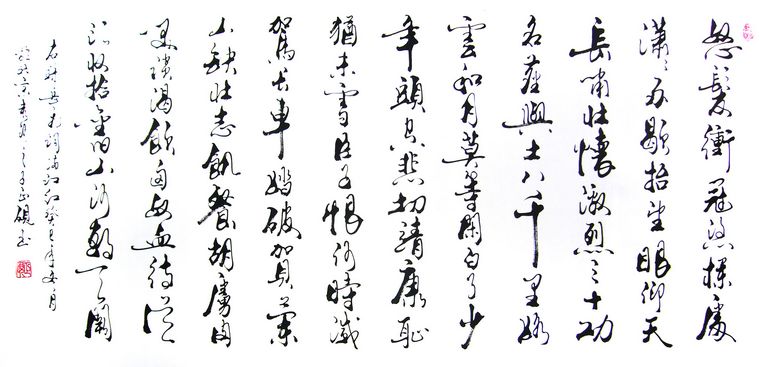 怒髮衝冠憑欄處
瀟瀟雨歇抬望眼仰天
長嘯壯懷激烈三十功
名塵與土八千里路
雲和月莫等閑白了少
年頭空悲切靖康恥
猶未雪臣子恨何時滅
駕長車踏破賀蘭
山缺壯志飢餐胡虜肉
笑談渴飲匈奴血待從
頭收拾舊山河朝天闕
右錄岳飛詞滿江紅癸巳年五月